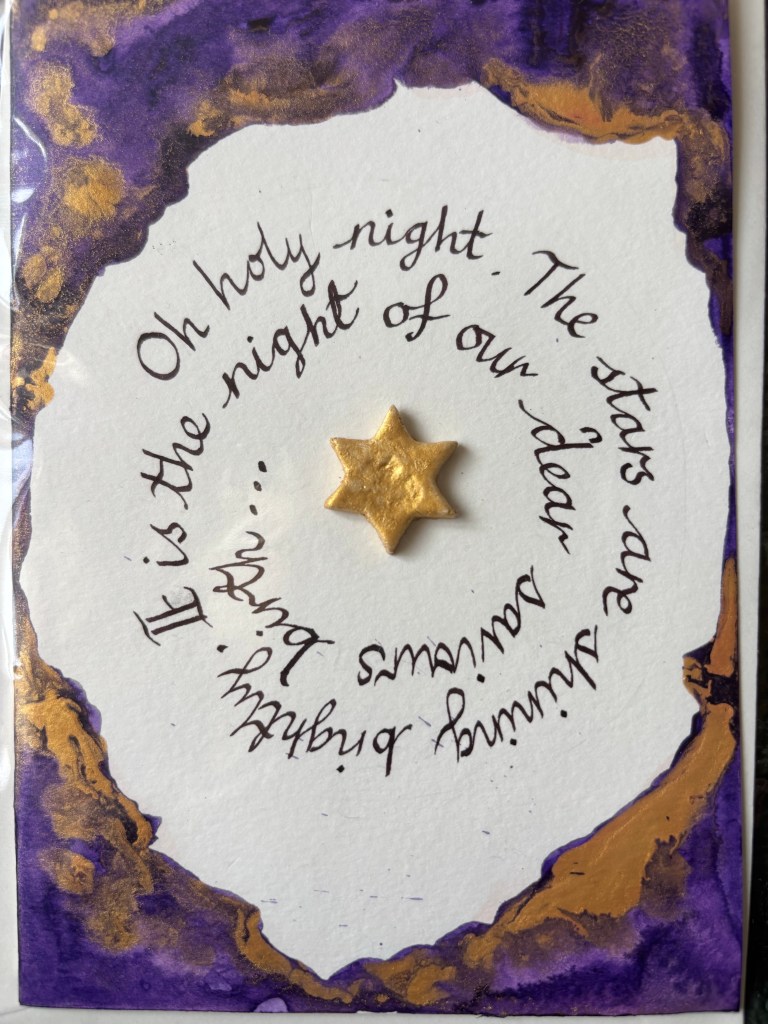 Oh holy night. The stars are shining brightly. It is the night of our dear saviours birth...